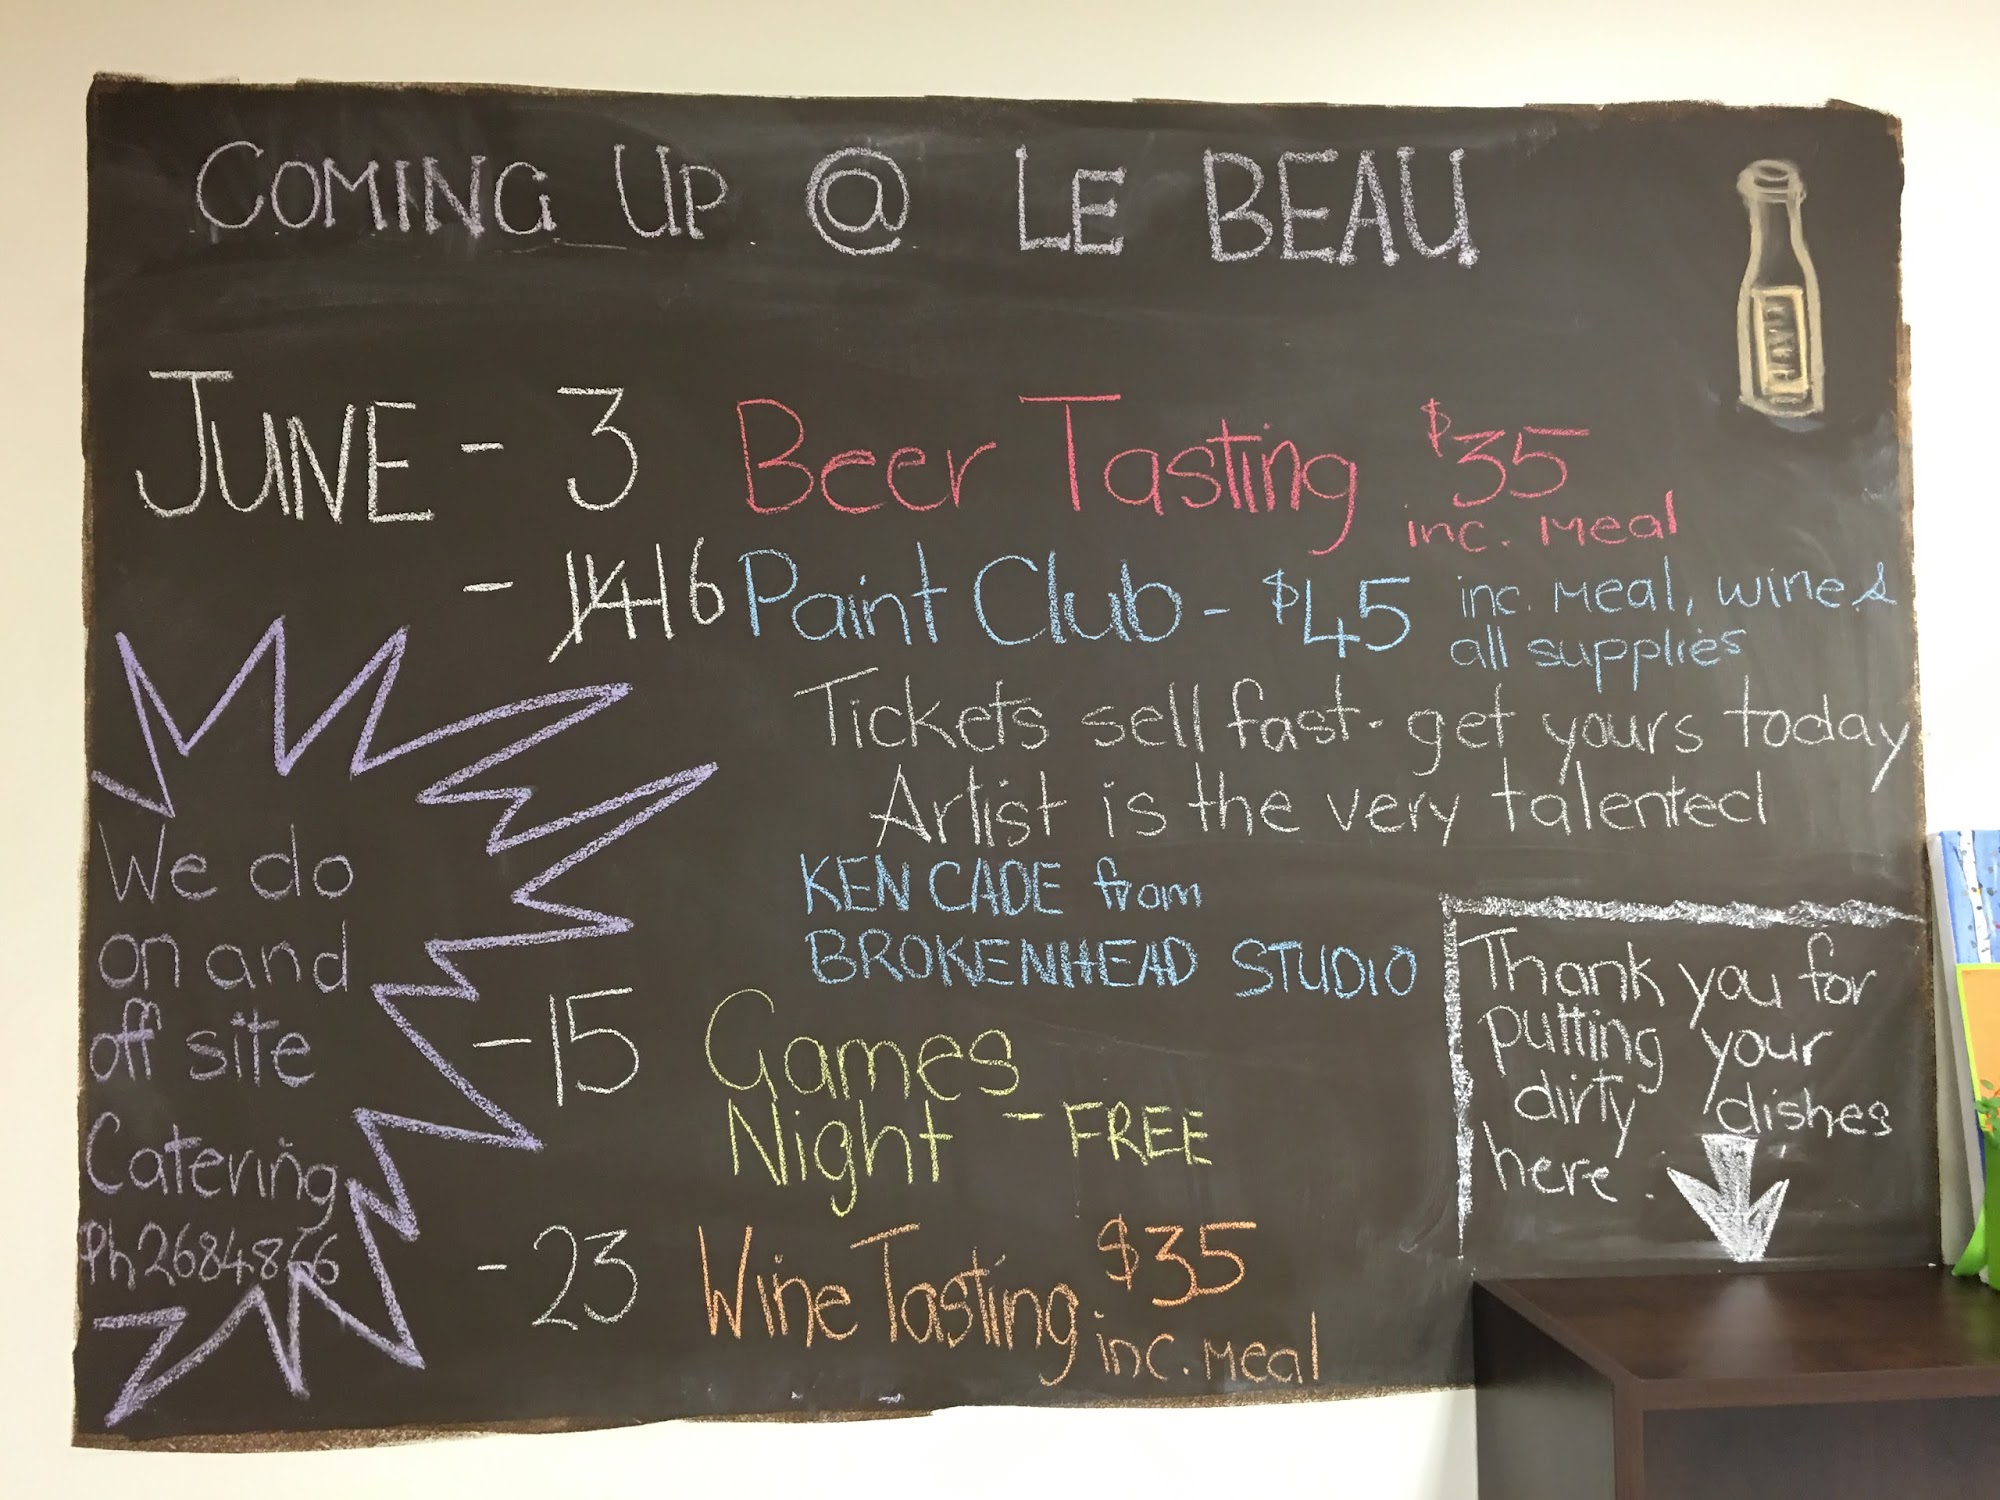 COMING UP @ LE BEAU
JUNE - 3 Beer Tasting $35
inc. meal
- 14 16 Paint Club - $45 inc. meal, wine &
all supplies
Tickets sell fast - get yours today
Artist is the very talented
KEN CADE from
BROKENHEAD STUDIO
- 15 Games
Night - FREE
- 23 Wine Tasting $35
inc. meal
We do
on and
off site
Catering
Ph 2684866
Thank you for
putting your
dirty dishes
here.